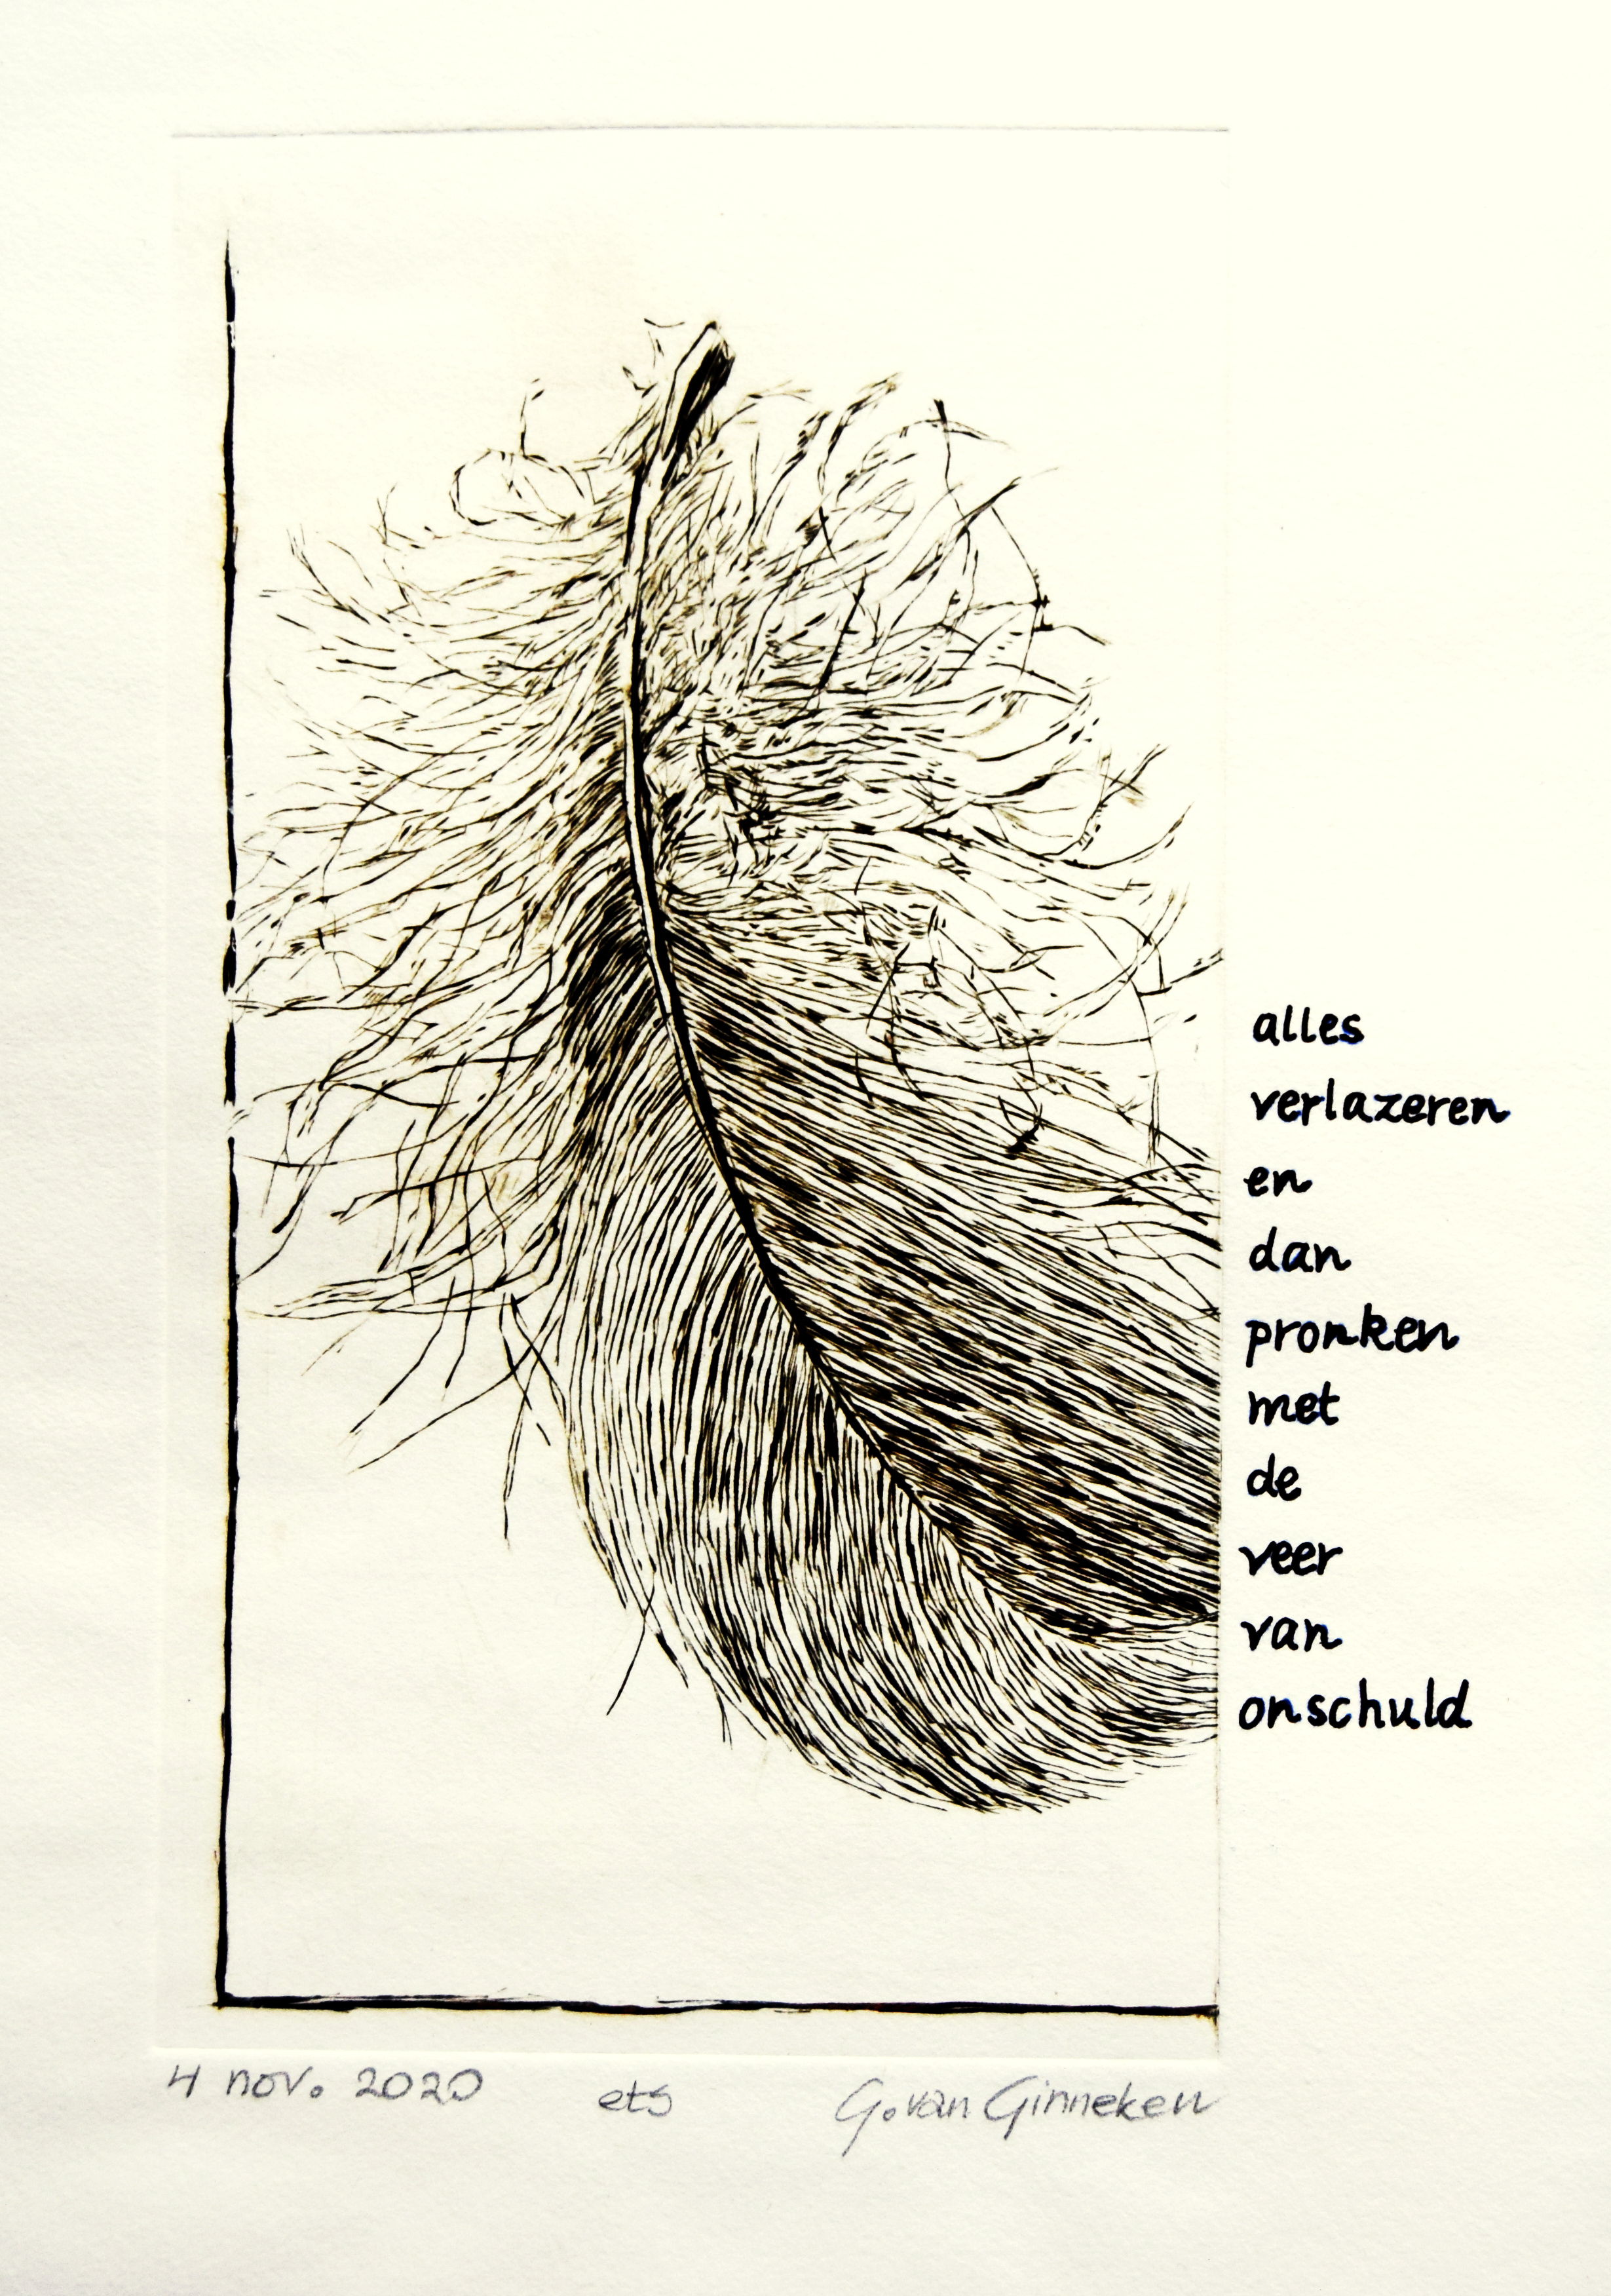 alles
verlazeren
en
dan
pronken
met
de
veer
van
onschuld
4 nov. 2020 ets G. van Ginneken